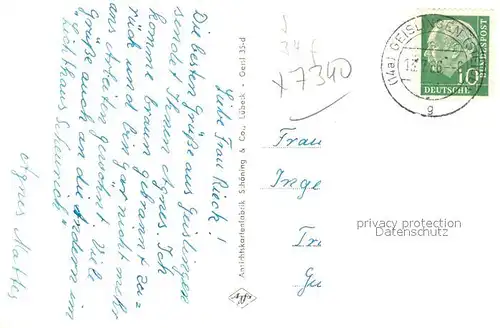 Liebe Frau Rieck!
Die besten Grüße aus Geislingen
sendet Ihnen Agnes. Ich
komme braun gebrannt zu-
rück und bin gar nicht mehr
ans Arbeiten gewöhnt. Viele
Grüße auch an die Andern im
"Lichthaus
Agnes Mattes
Ansichtskartenfabrik Schöning & Co., Lübeck · Geril 35-d
Agfa
x 7340
(14a) GEISLINGEN
g
DEUTSCHE BUNDESPOST
10
Frau
Inge
privacy protection
Datenschutz